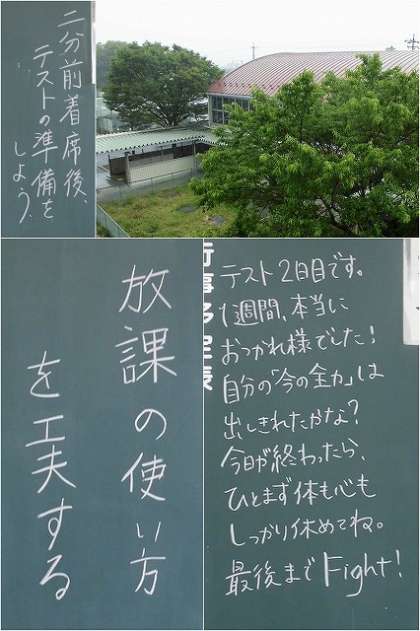 二分前着席後、
テストの準備を
しよう。
放課の使い方
を工夫する
行事予定表
テスト2日目です。
1週間、本当に
おつかれ様でした!
自分の「今の全力」は
出しきれたかな?
今日が終わったら、
ひとまず体も心も
しっかり休めてね。
最後までFight!